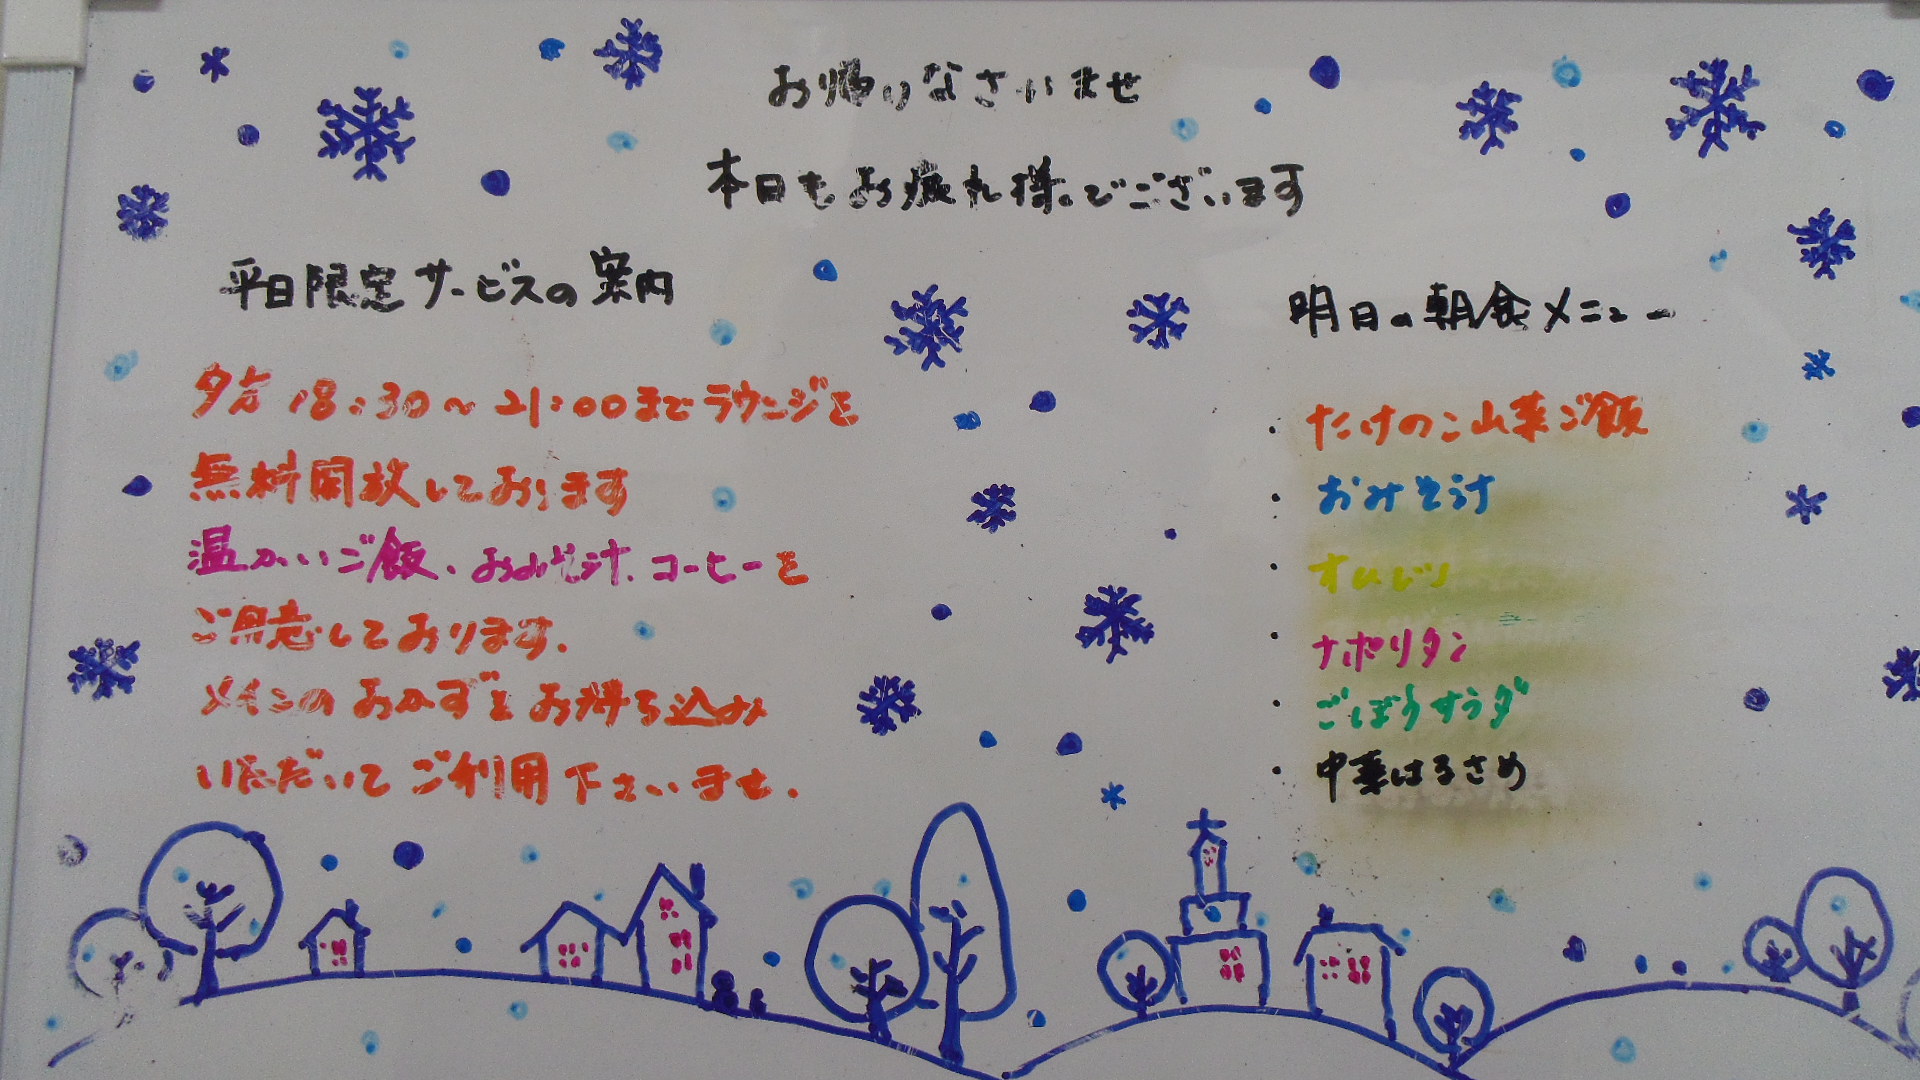 お帰りなさいませ
本日もお疲れ様でございます
平日限定サービスの案内
夕方18:30～21:00までラウンジを
無料開放しております
温かいご飯、おみそ汁、コーヒーを
ご用意しております。
メインのおかずをお持ち込み
いただいてご利用下さいませ。
明日の朝食メニュー
・たけのこ山菜ご飯
・おみそ汁
・オムレツ
・ナポリタン
・ごぼうサラダ
・中華はるさめ